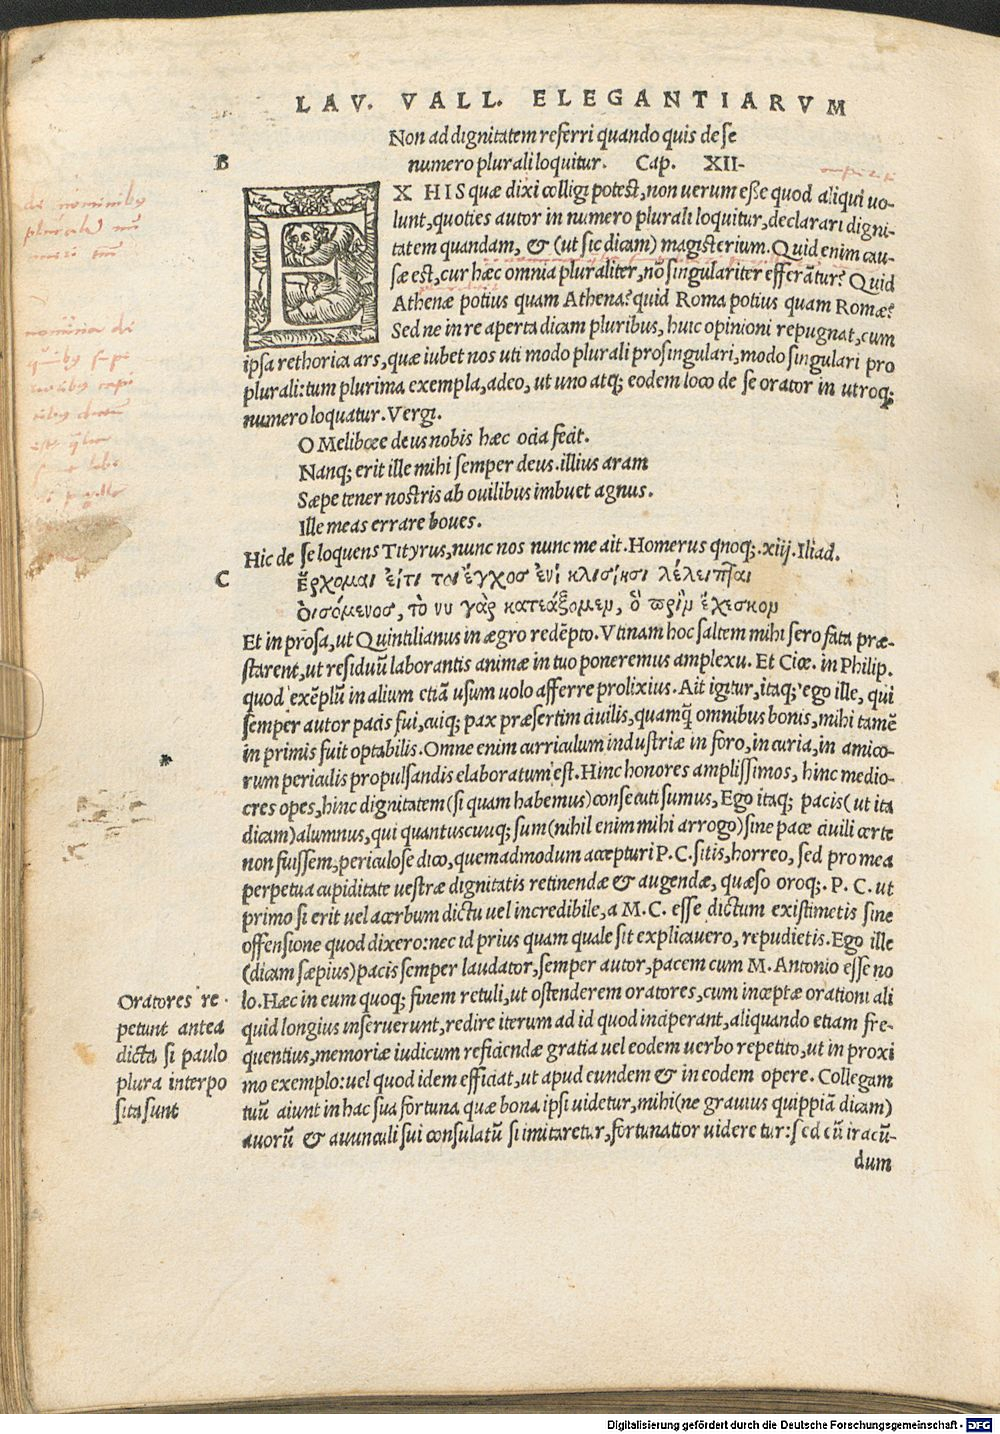 LAV. VALL. ELEGANTIARVM
Non ad dignitatem referri quando quis de se
B
numero plurali loquitur. Cap. XII-
EX HIS quæ dixi colligi potest, non uerum esse quod aliqui uo-
lunt, quoties autor in numero plurali loquitur, declarari digni-
tatem quandam, & (ut sic dicam) magisterium. Quid enim cau-
sæ est, cur hæc omnia pluraliter, nõ singulariter efferãtur? Quid
Athenæ potius quam Athena? quid Roma potius quam Romæ?
Sed ne in re aperta dicam pluribus, huic opinioni repugnat, cum
ipsa rethorica ars, quæ iubet nos uti modo plurali pro singulari, modo singulari pro
plurali: tum plurima exempla, adeo, ut uno atq; eodem loco de se orator in utroq;
numero loquatur. Vergi.
O Meliboee deus nobis hæc ocia fecit.
Nanq; erit ille mihi semper deus. illius aram
Sæpe tener nostris ab ouilibus imbuet agnus.
Ille meas errare boues.
Hic de se loquens Tityrus, nunc nos nunc me ait. Homerus qnoq;. xiij. Iliad.
C
Ἔρχομαι εἴτι τοι ἔγχος ἐνὶ κλισίησι λέλειπται
Ὀισόμενος, τὸ νυ γὰρ κατεάξομεν, ὃ πρὶν ἔχεσκον
Et in prosa, ut Quintilianus in ægro redẽpto. Vtinam hoc saltem mihi sero fata præ-
starent, ut residuũ laborantis animæ in tuo poneremus amplexu. Et Cice. in Philip.
quod exẽplũ in alium etiã usum uolo afferre prolixius. Ait igitur, itaq; ego ille, qui
semper autor pacis fui, cuiq; pax præsertim ciuilis, quamq̃ omnibus bonis, mihi tamẽ
in primis fuit optabilis. Omne enim curriculum industriæ in foro, in curia, in amico-
rum periculis propulsandis elaboratum est. Hinc honores amplissimos, hinc medio-
cres opes, hinc dignitatem (si quam habemus) consecuti sumus, Ego itaq; pacis (ut ita
dicam) alumnus, qui quantuscuuq; sum (nihil enim mihi arrogo) sine pace ciuili certe
non fuissem, periculose dico, quemadmodum accepturi P. C. sitis, horreo, sed pro mea
perpetua cupiditate uestræ dignitatis retinendæ & augendæ, quæso oroq;. P. C. ut
primo si erit uel acerbum dictu uel incredibile, a M. C. esse dictum existimetis sine
offensione quod dixero: nec id prius quam quale sit explicauero, repudietis. Ego ille
(dicam sæpius) pacis semper laudator, semper autor, pacem cum M. Antonio esse no
lo. Hæc in eum quoq; finem retuli, ut ostenderem oratores, cum inceptæ orationi ali
quid longius inseruerunt, redire iterum ad id quod inciperant, aliquando etiam fre-
quentius, memoriæ iudicum reficiendæ gratia uel eodem uerbo repetito, ut in proxi
mo exemplo: uel quod idem efficiat, ut apud eundem & in eodem opere. Collegam
tuũ aiunt in hac sua fortuna quæ bona ipsi uidetur, mihi (ne grauius quippiã dicam)
auorũ & auunculi sui consulatũ si imitaretur, fortunatior uidere tur: sed cũ iracũ-
dum
Oratores re
petunt antea
dicta si paulo
plura interpo
sita sunt
Digitalisierung gefördert durch die Deutsche Forschungsgemeinschaft - DFG